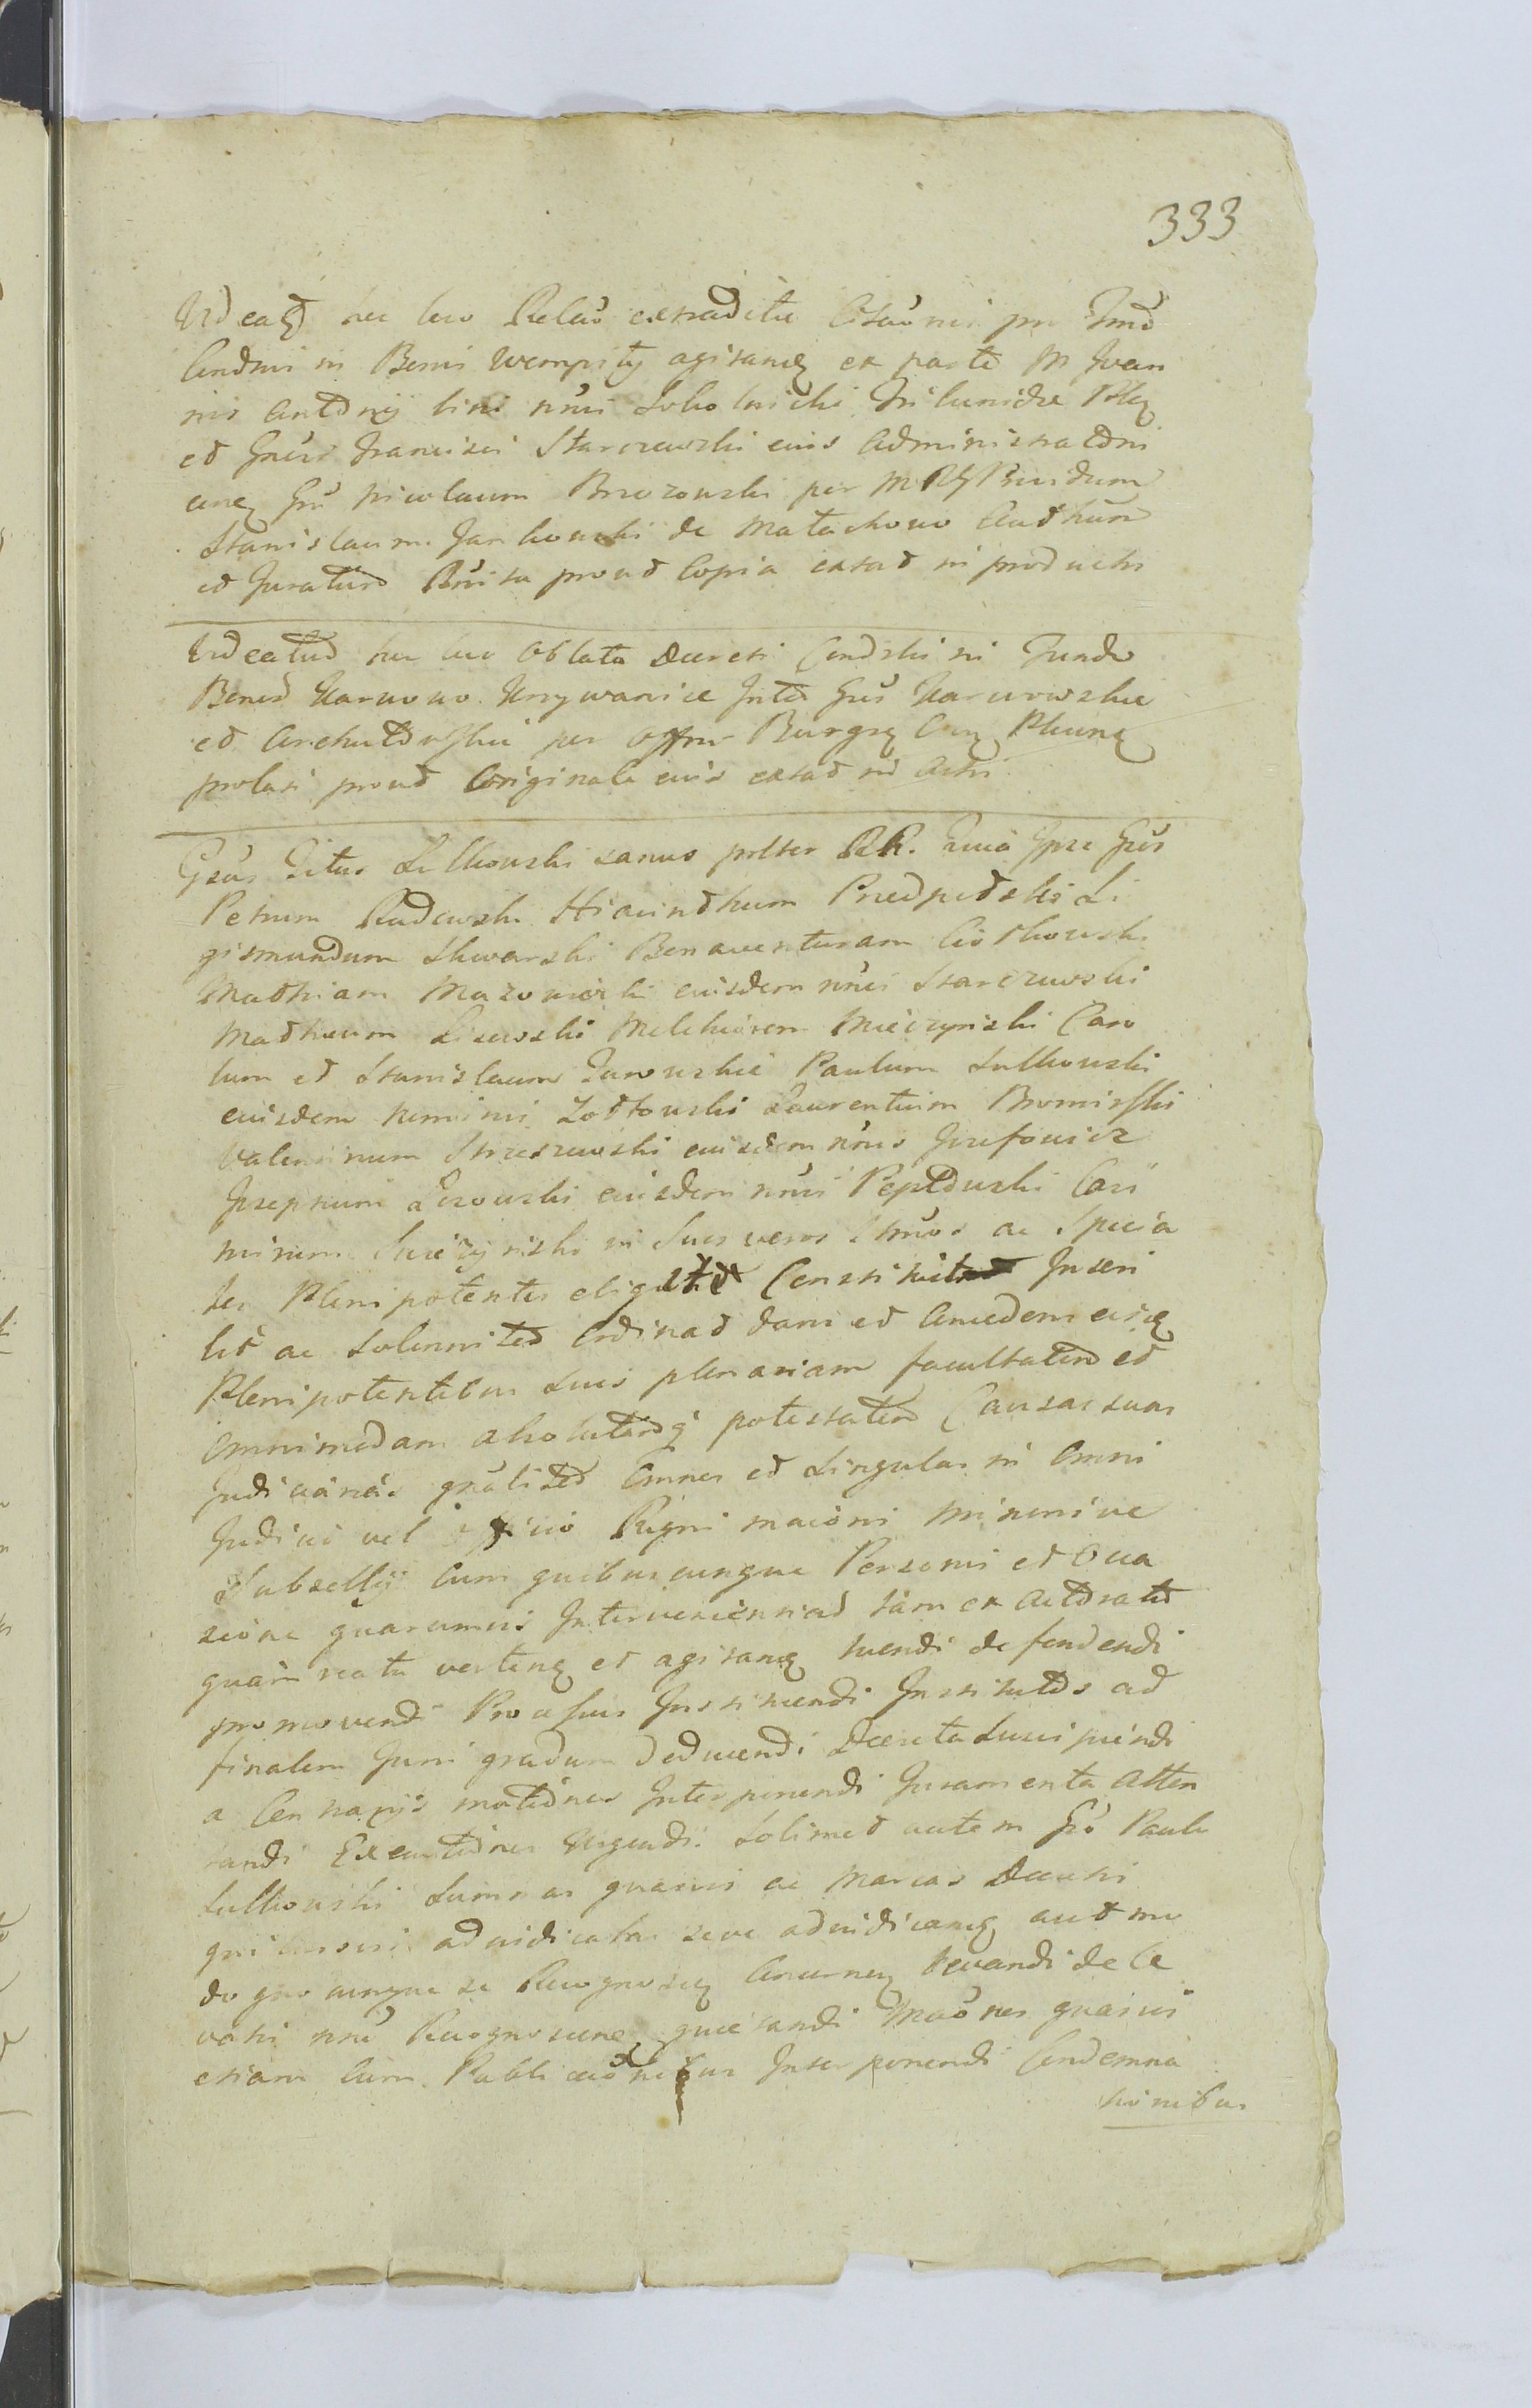 333
Videatur hic loco Relāo extraditū Citāōnis pro Tmō
Condni in Bonis Wempiły agitanę ex parte M Joan
nis Antonij bini nn̄is Sokolnicki Plę
et Gn̄ēis Francisci Starczewski eius Administratōni
cunę Gn̄ Nicolaum Brzozowski per M RG Providum
Stanislaum Jankowski de Małachowo Authen
et Juratum Prusa prout Copia extat in productis
Videatur hic loco Oblata Decreti Condski in Fundo
Bonor Karwowo Krzywanice Inter Gn̄s Karwowskie
et per Offm Burgrę Plecinę
prolati prout Originale eius extat in Actis
Gn̄sus Titus Sulkowski sanus palter RR. Quia Ipse Gn̄s
Petrum Radewski Hiacinthum Si
gismundum Skwarski Bonaventuram Ciołkowski
Mathiam Mazowiecki eiusdem nn̄is Starczewski
Matheum Lisewski Melchiorem Mieczynski Caro
lum et Stanislaum Turowskie Paulum Sulkowski
eiusdem Nominis Zołtowski Laurentium Bromirski
Valentinum Strzeszewski eiusdem nn̄is Jozefowicz
Josephum Lezowski eiusdem nn̄is Casi
mirum in Suos veros Ltimos ac Specia
les Plenipotentes eligit Constituit Inseri
bit ac Solenniter Ordinat dans et Concedens eisdę
Plenipotentibus Suis plenariam facultatem et
Omnimodam absolutamq̃ potestatem Causas suas
Judiciarias gn̄aliter Omnes et Singulas in Omni
Judicio vel officio Regni maioris Minorisve
Subsellij Cum quibuscunque Personis et Occa
sione quarumvis Intervenienriat tam ex Actoratu
quam reatu vertenę et agitanę tuendi defendendi
promovendi Processus Instituendi Institutos ad
finalem Juris gradum Deducendi Decreta Suscipiendi
a Contrarijs motiones Interponendi Juramenta Atten
tandi Executiones Urgendi. Solimet autem Gn̄o Paulo
Sulkowski Summas quasvis ac Marcas Decreti
quibusvis adiudicatas sive adiudicanę aut mo
do quocunque se Recognoscę Concernę Levandi de Le
vatis nn̄e Recognoscenę quietandi Mn̄ōnes quasvis
etiam Cum Publicāōnibus Interponendi Condemna
tionibus